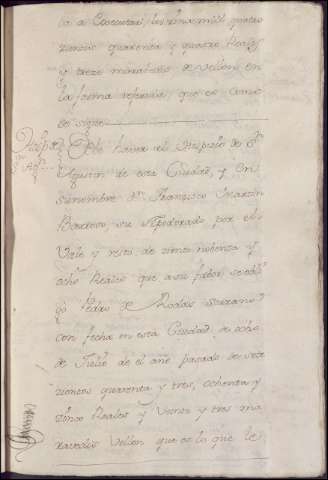 to a Executar, los dhos mill quatro
zientos quarenta y quatro Reales
y treze maravedis de vellon en
la forma referida que es como
se sigue
Hospizio de Sn Agn
Debe haver el Hospizio de Sn
Agustin de esta Ciudad, y en
su nombre Dn Francisco Martin
Barroso, su Apoderado por el
Vale y resto de zinco nobenta y
ocho Reales que a su fabor se obli
go Pedro de Rodas Serrano
con fecha en esta Ciudad, de ocho
de Julio de el año pasado de sete
zientos quarenta y tres, ochenta y
zinco Reales y Veinte y tres ma
ravedis Vellon que es lo que le